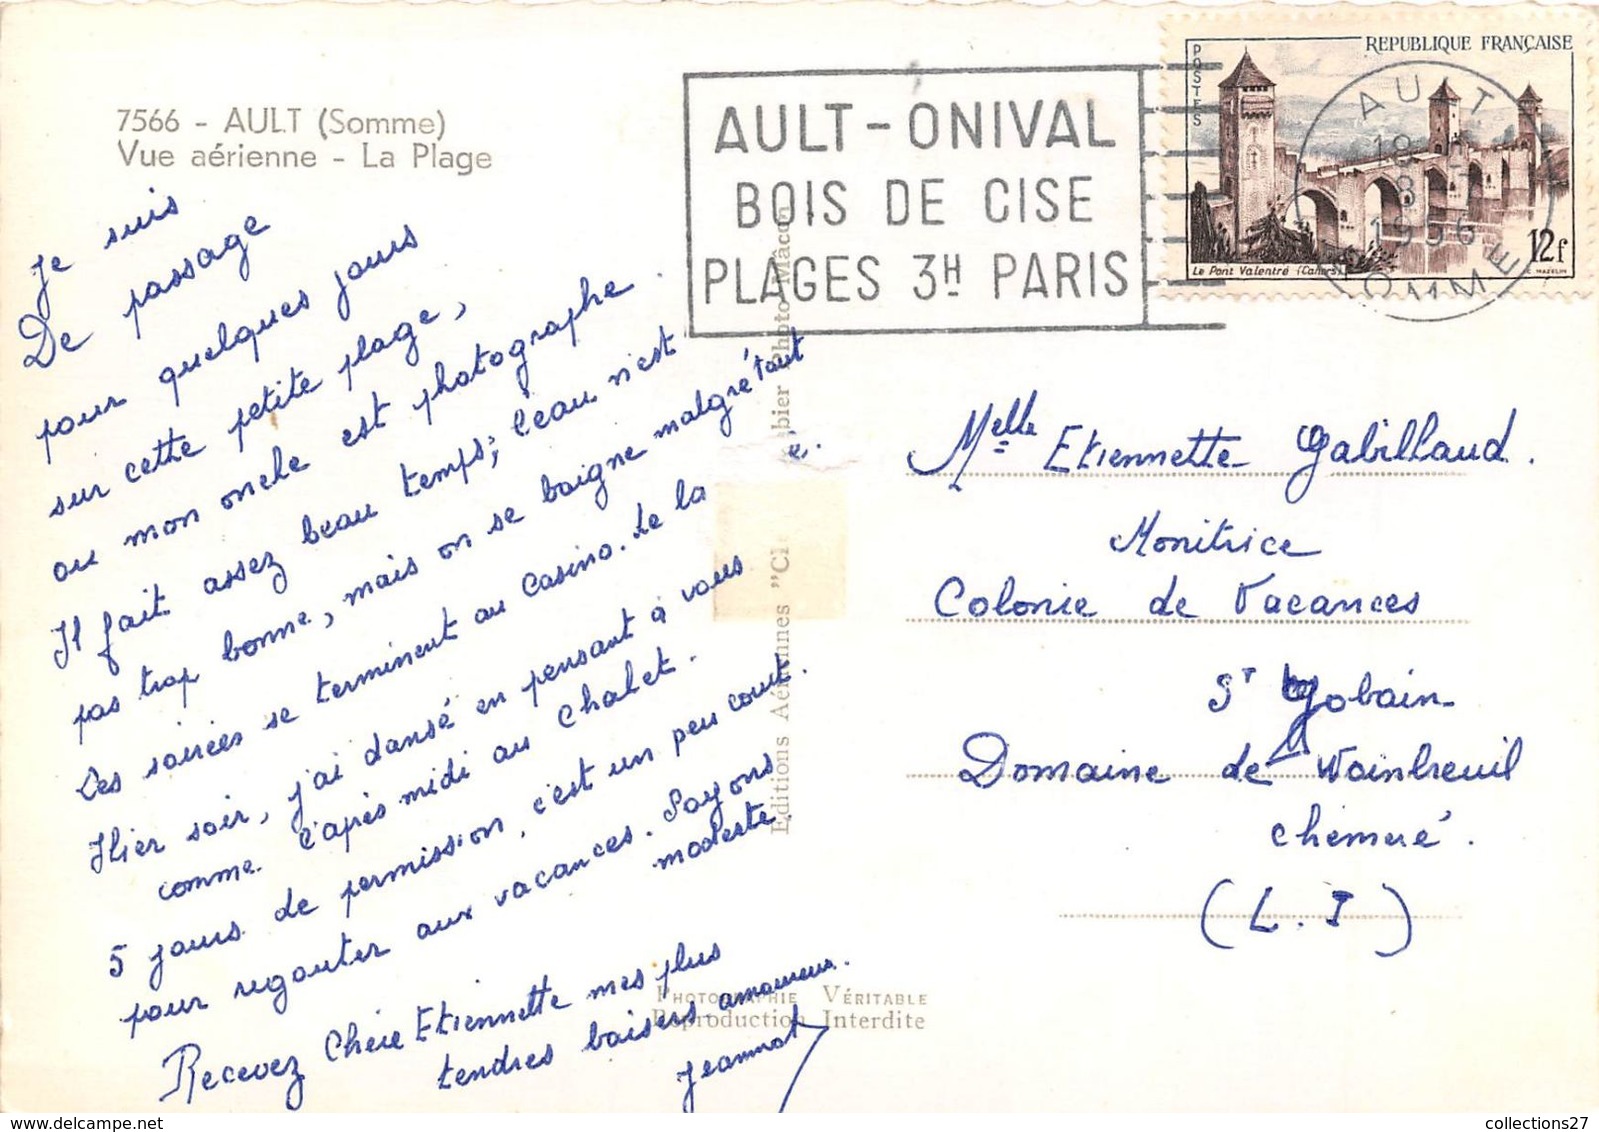 7566 - AULT (Somme)
Vue aérienne - La Plage
Je suis
De passage
pour quelques jours
sur cette petite plage,
ou mon oncle est photographe.
Il fait assez beau temps; l'eau n'est
pas trop bonne, mais on se baigne malgré tout
Les soirées se terminent au Casino. de la
Hier soir, j'ai dansé en pensant à vous
comme l'après midi au Chalet.
5 jours de permission, c'est un peu court.
pour regouter aux vacances. Soyons
modeste.
Recevez Chère Etiennette mes plus
tendres baisers amoureux.
Jeannot
Editions Aériennes "Cl bier Photo Mâcon
PHOTOGRAPHIE VÉRITABLE
Reproduction Interdite
AULT - ONIVAL
BOIS DE CISE
PLAGES 3H PARIS
POSTES
REPUBLIQUE FRANÇAISE
Le Pont Valentré (Cahors)
12f
E. MAZELIN
AULT
18
8
1956
SOMME
Melle Etiennette Gabillaud.
Monitrice
Colonie de Vacances
St Gobain
Domaine de Wointreuil
Chéméré.
(L. I)
collections27